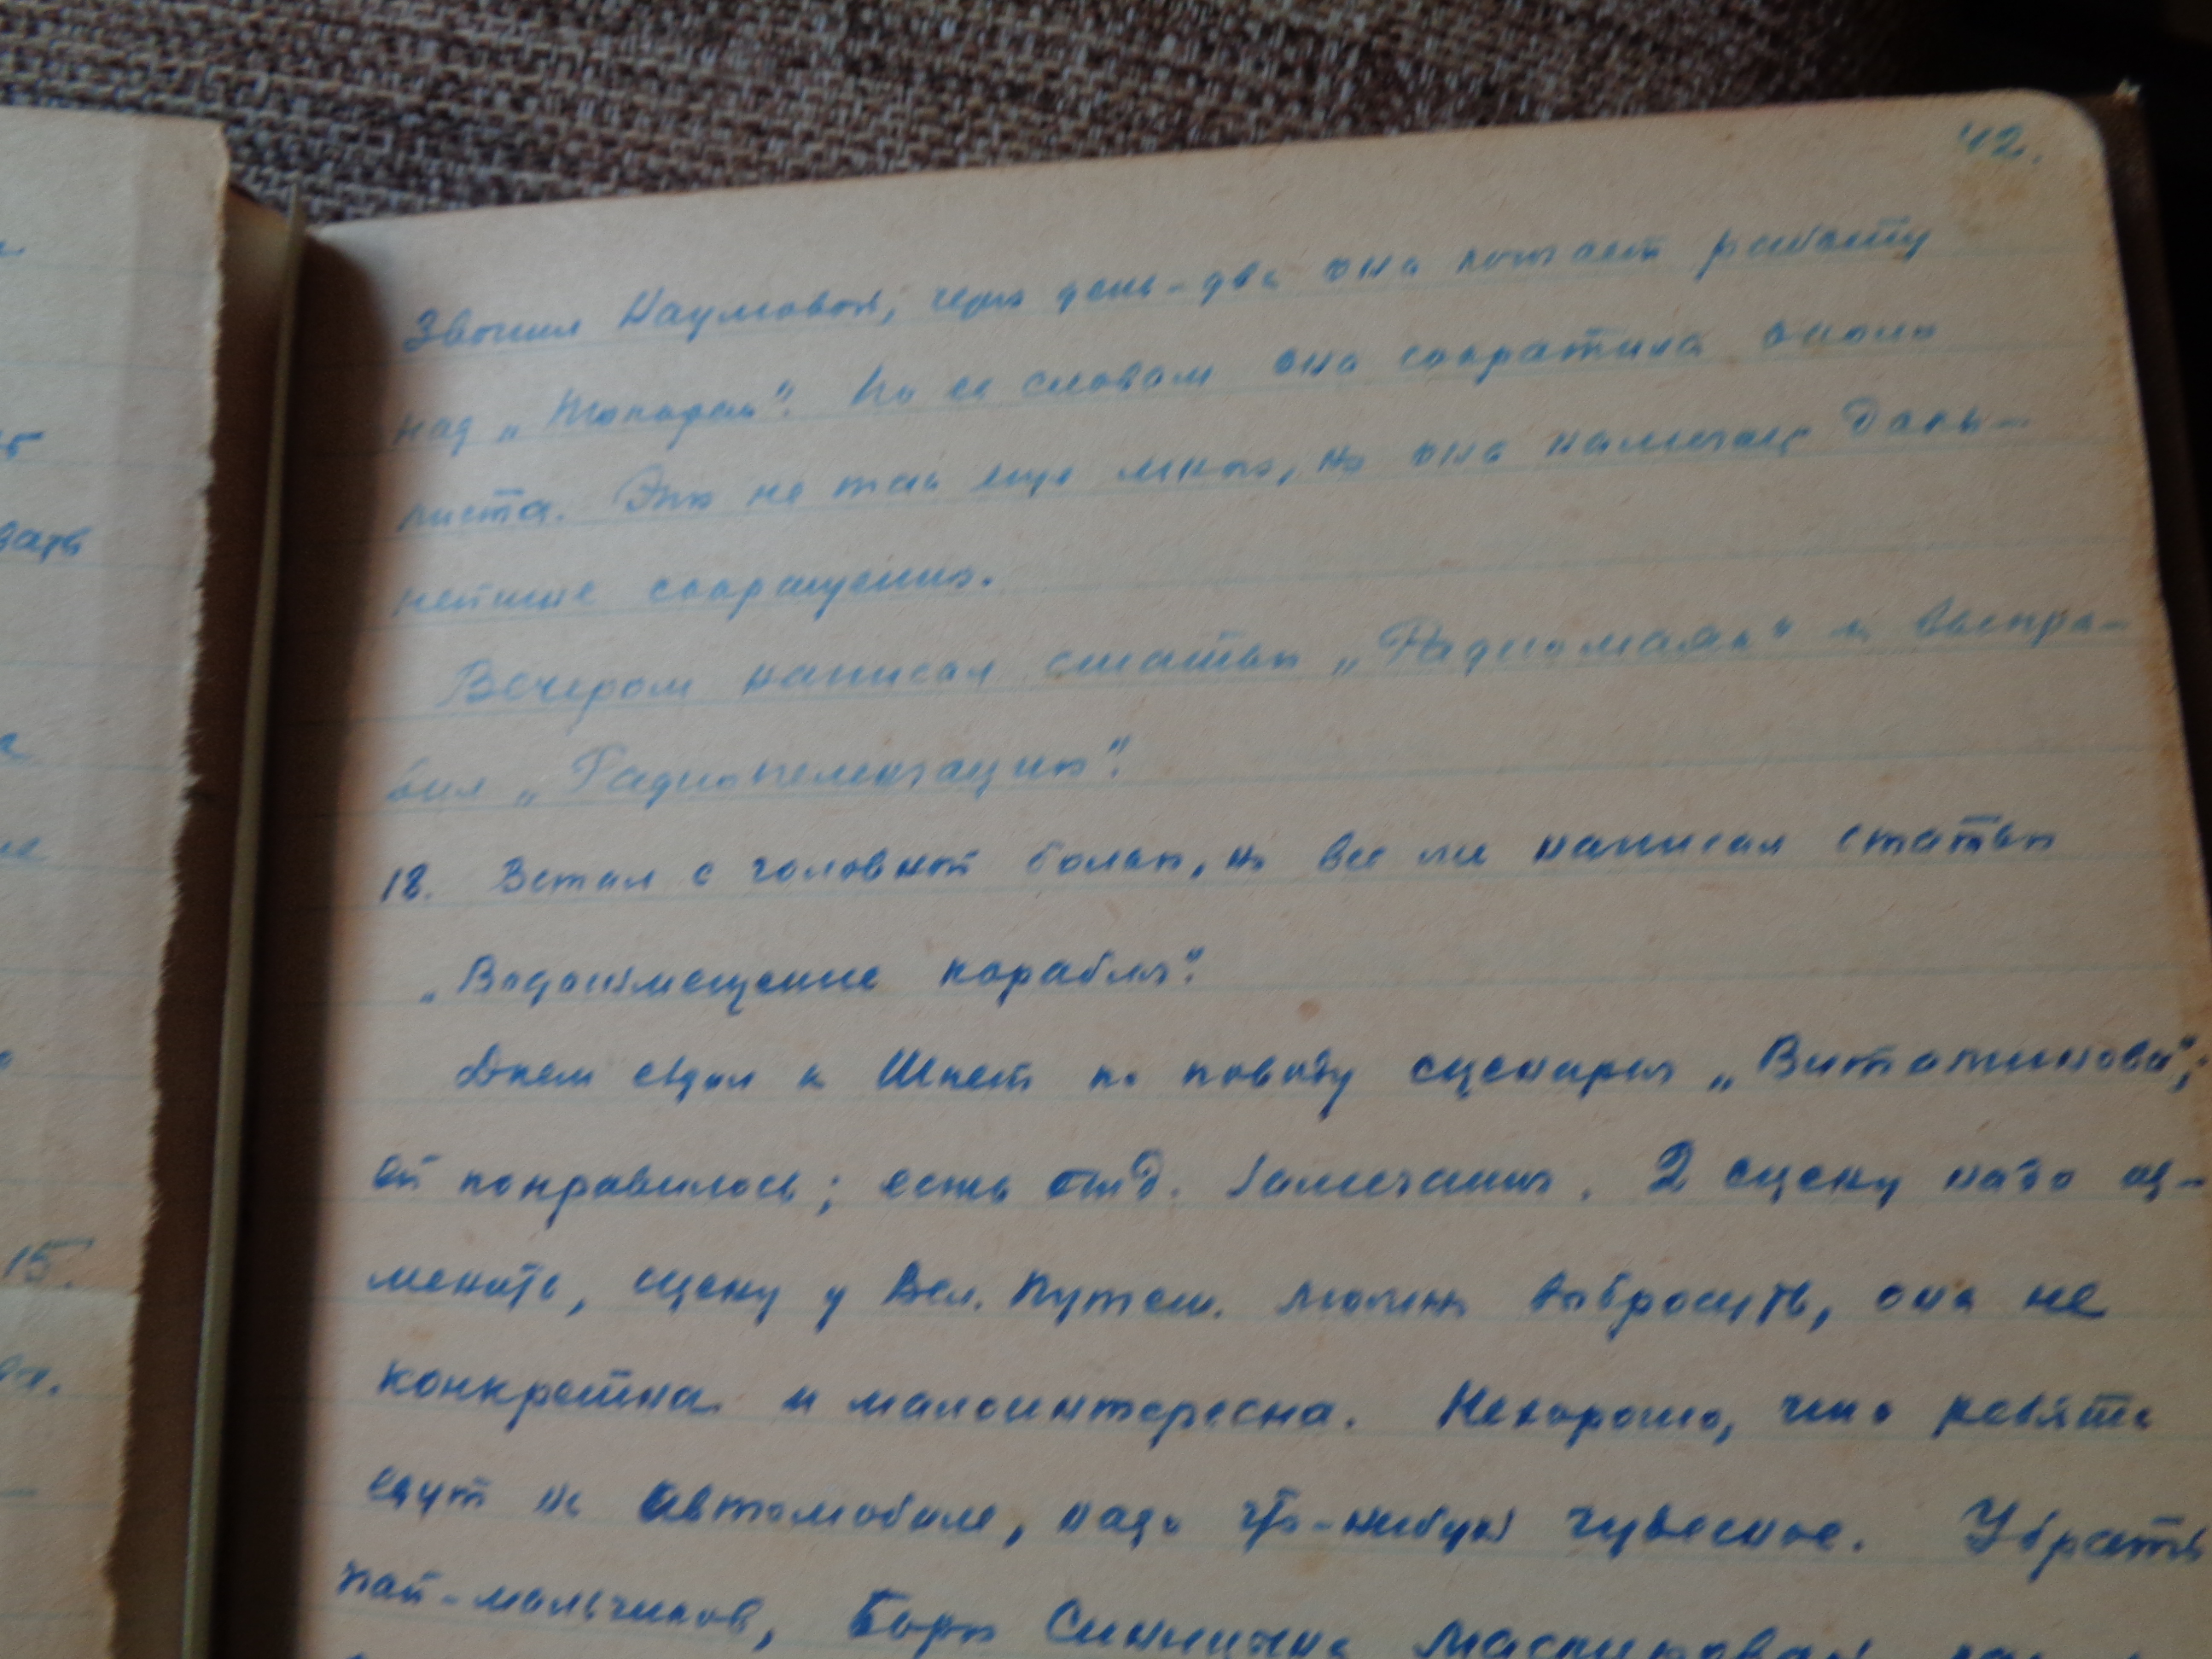 42.
Звонил Наумовой, через день-два она кончает работу
над „Жокофом". По ее словам она сократила около
листа. Это не так еще много, но она намечает даль-
нейшие сокращения.
Вечером написал статью „Радиомаяк" и выпра-
вил „Радиопеленгацию".
18. Встал с головной болью, но все же написал статью
„Водоизмещение корабля".
Днем ездил к Шпет по поводу сценария „Витаминова";
ей понравилось; есть отд. замечания. 2 сцену надо из-
менить, сцену у Вел. Путеш. можно выбросить, она не
конкретна и малоинтересна. Нехорошо, что ребята
едут на автомобиле, надо что-нибудь чудесное. Убрать
пай-мальчиков, Борю Синицына
вать
15.